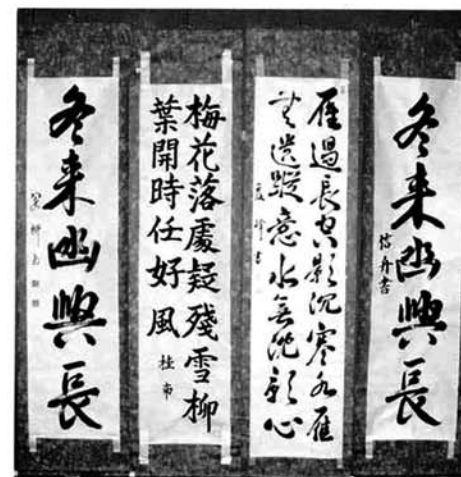 冬来幽興長
舟書
雁過長空影沉寒水雁
無遺蹤意水無沈影心
梅花落處疑殘雪柳
葉開時任好風
桂南
冬来幽興長